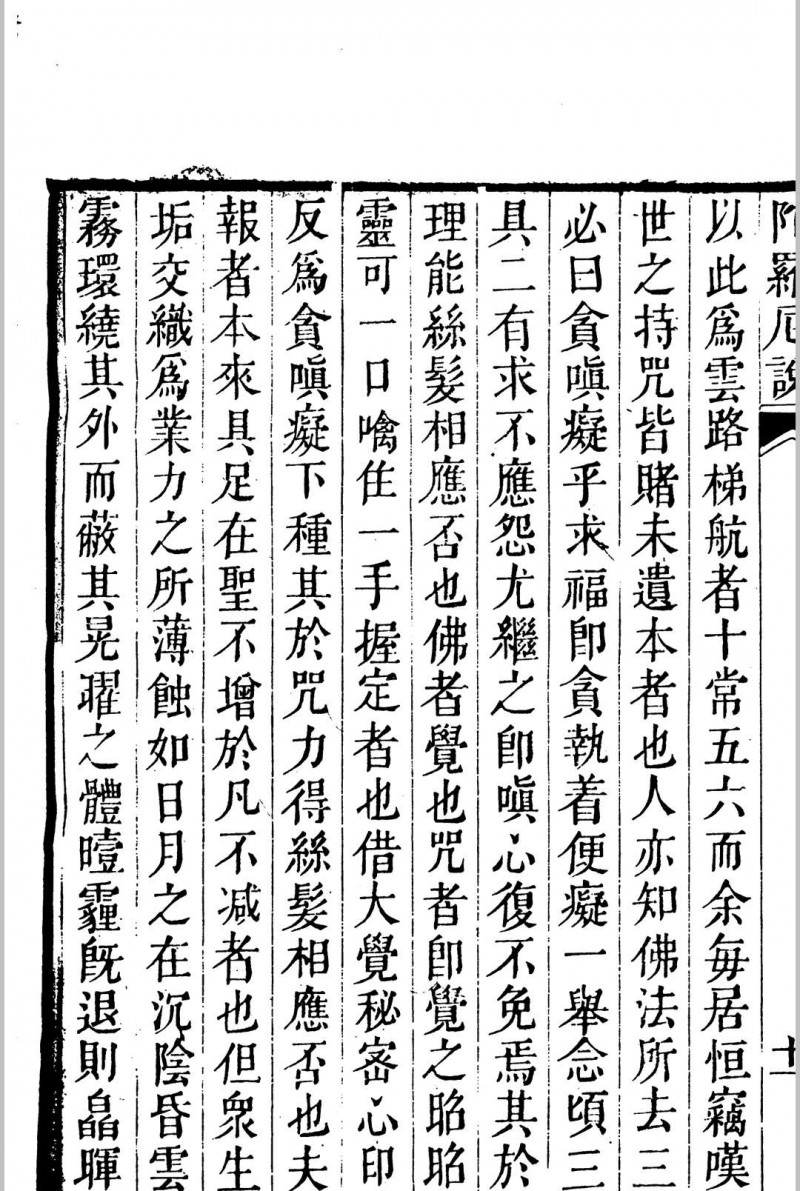 陀羅尼說
十一
以此爲雲路梯航者十常五六而余每居恒竊嘆
世之持咒皆賭未遺本者也人亦知佛法所去三
必曰貪嗔癡乎求福卽貪執着便癡一舉念頃三
具二有求不應怨尤繼之卽嗔心復不免焉其於
理能絲髮相應否也佛者覺也咒者卽覺之昭昭
靈可一口噙住一手握定者也借大覺秘密心印
反爲貪嗔癡下種其於咒力得絲髮相應否也夫
報者本來具足在聖不增於凡不减者也但衆生
垢交織爲業力之所薄蝕如日月之在沉陰昏雲
霧環繞其外而蔽其晃曜之體曀霾旣退則晶暉